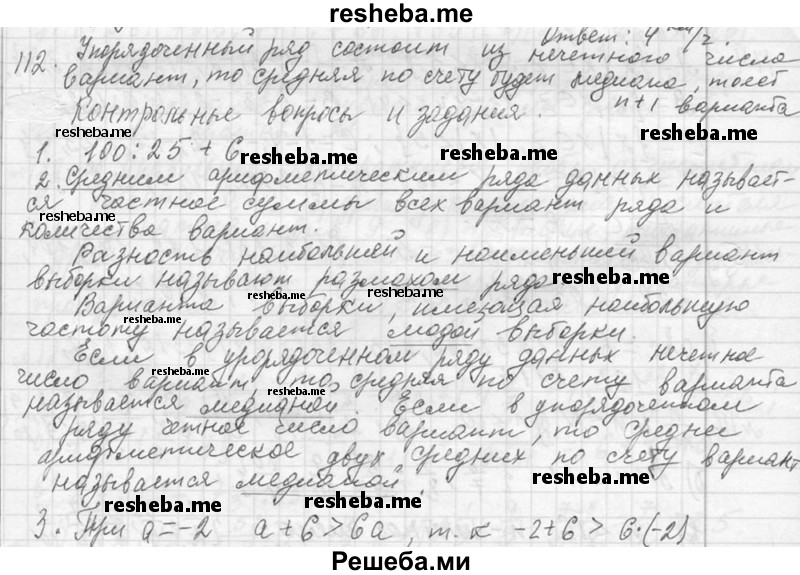 resheba.me
Ответ: 4
112. Упорядоченный ряд состоит из нечетного числа
вариант, то средняя по счету будет медиана, т.е
n+1 варианта
Контрольные вопросы и задания.
1. 100:25 + 6
resheba.me resheba.me resheba.me
2. Средним арифметическим ряда данных называет-
ся частное суммы всех вариант ряда и
resheba.me
количества вариант.
Разность наибольшей и наименьшей вариант
выборки называют размахом ряда
resheba.me resheba.me resheba.me
Варианта выборки, имеющая наибольшую
resheba.me
частоту называется модой выборки.
Если в упорядоченном ряду данных нечетное
число вариант, то средняя по счету варианта
resheba.me
называется медианой. Если в упорядоченном
ряду четное число вариант, то среднее
арифметическое двух средних по счету вариант
называется медианой.
resheba.me
resheba.me resheba.me
3. При a=-2 a+6>6a, т.к -2+6 > 6·(-2)
Решеба.ми